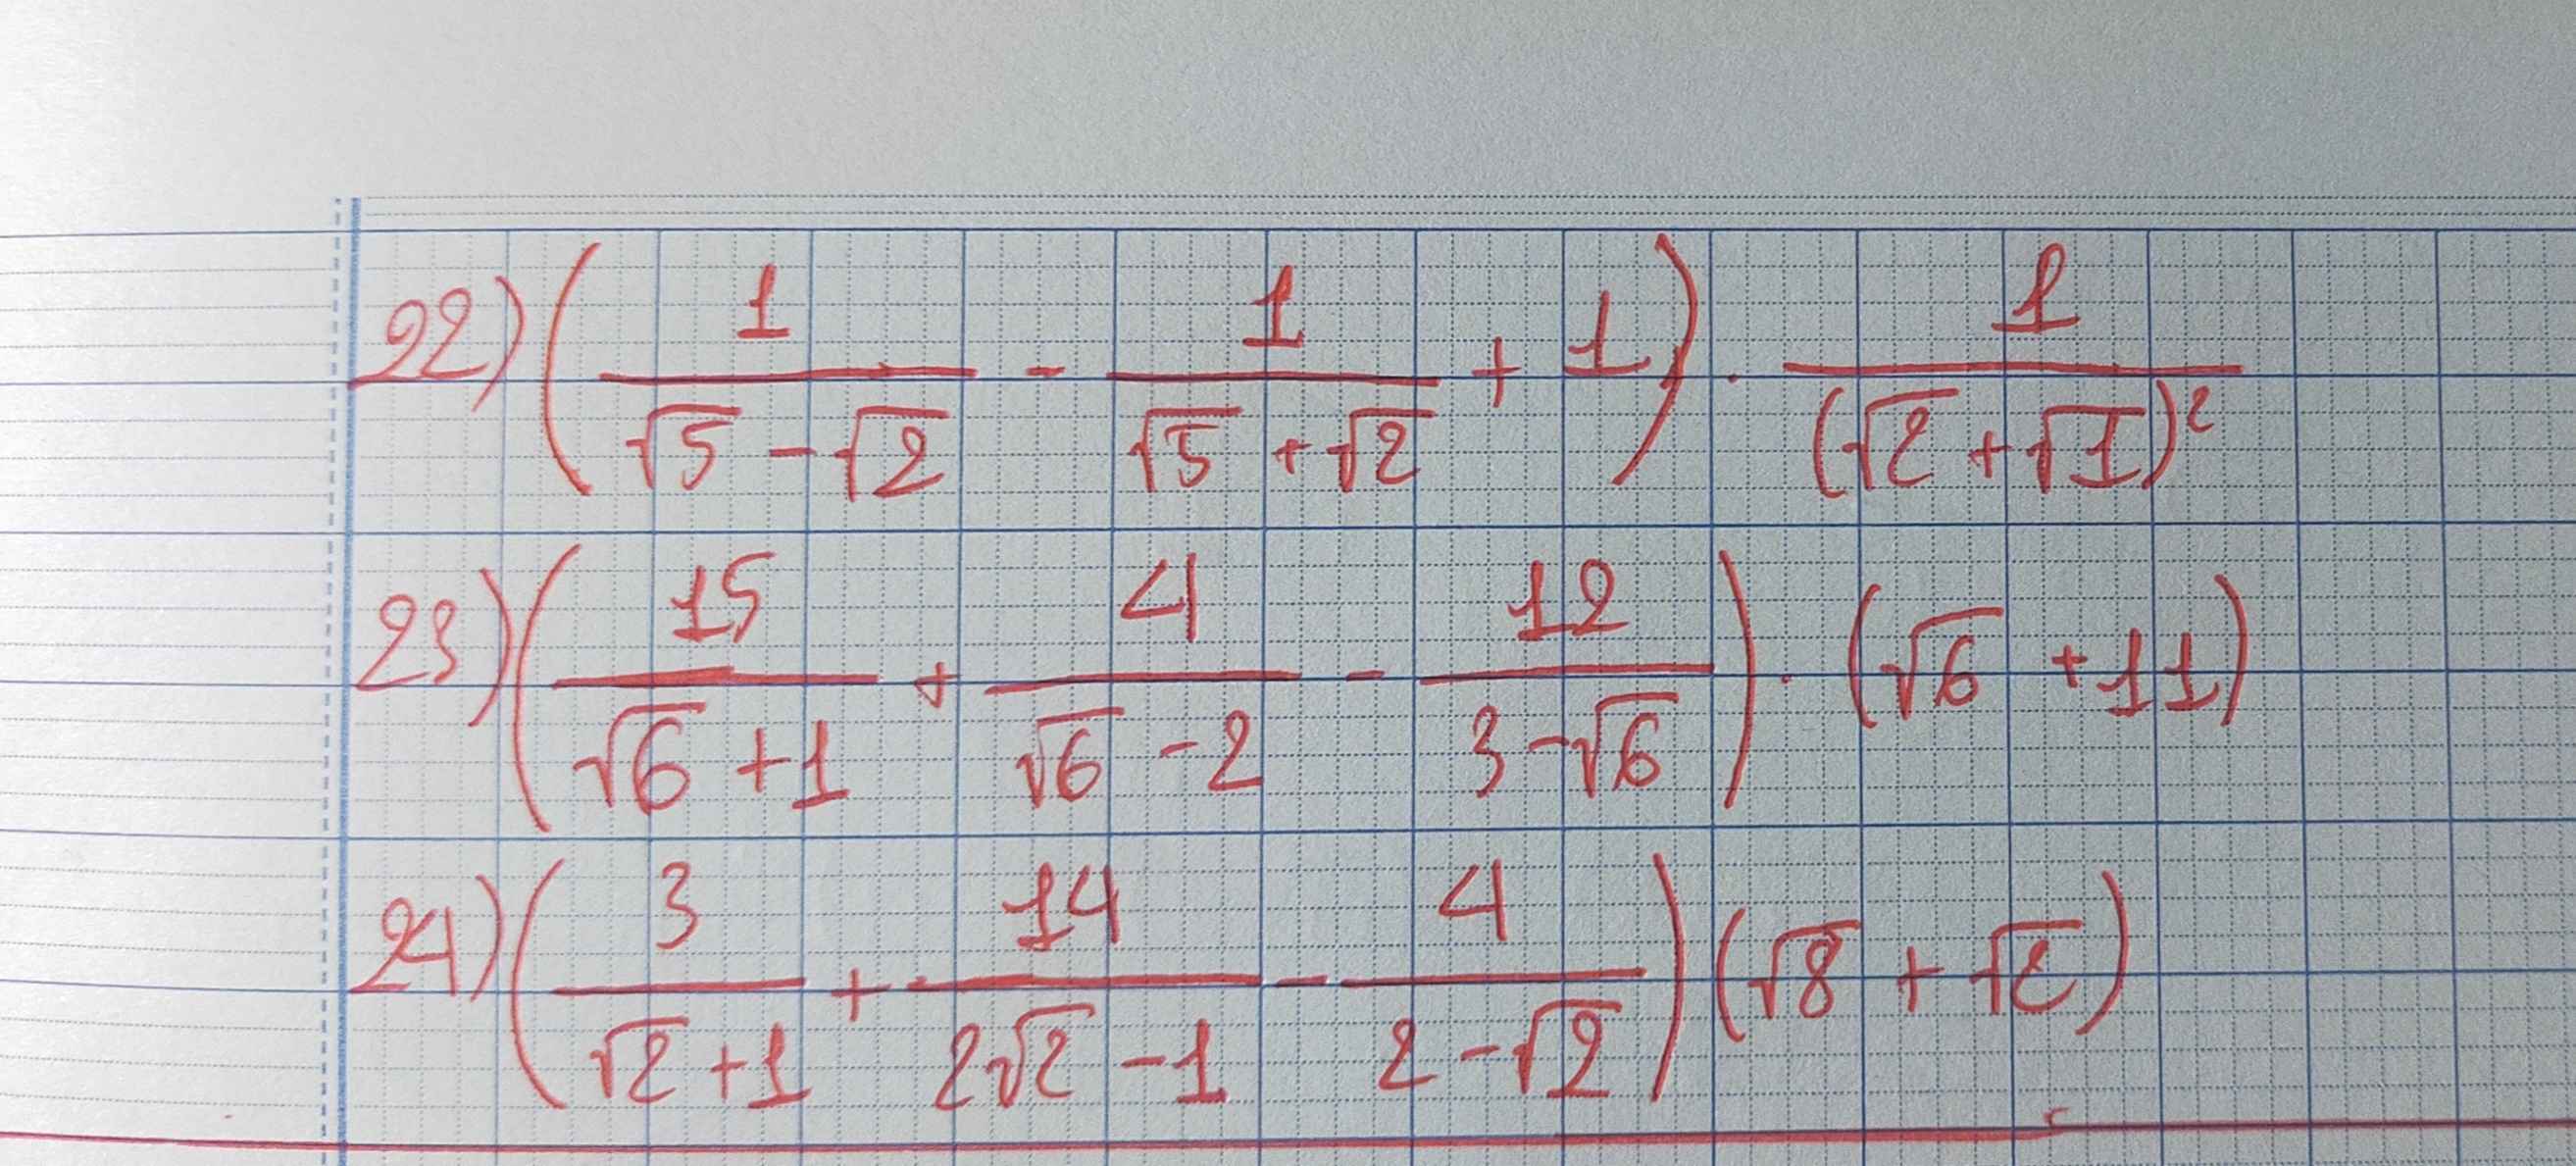 22) (1/(√5 - √2) - 1/(√5 + √2) + 1) . 1/(√2 + √1)²
23) (15/(√6 + 1) + 4/(√6 - 2) - 12/(3 - √6)) . (√6 + 11)
24) (3/(√2 + 1) + 14/(2√2 - 1) - 4/(2 - √2)) (√8 + √2)